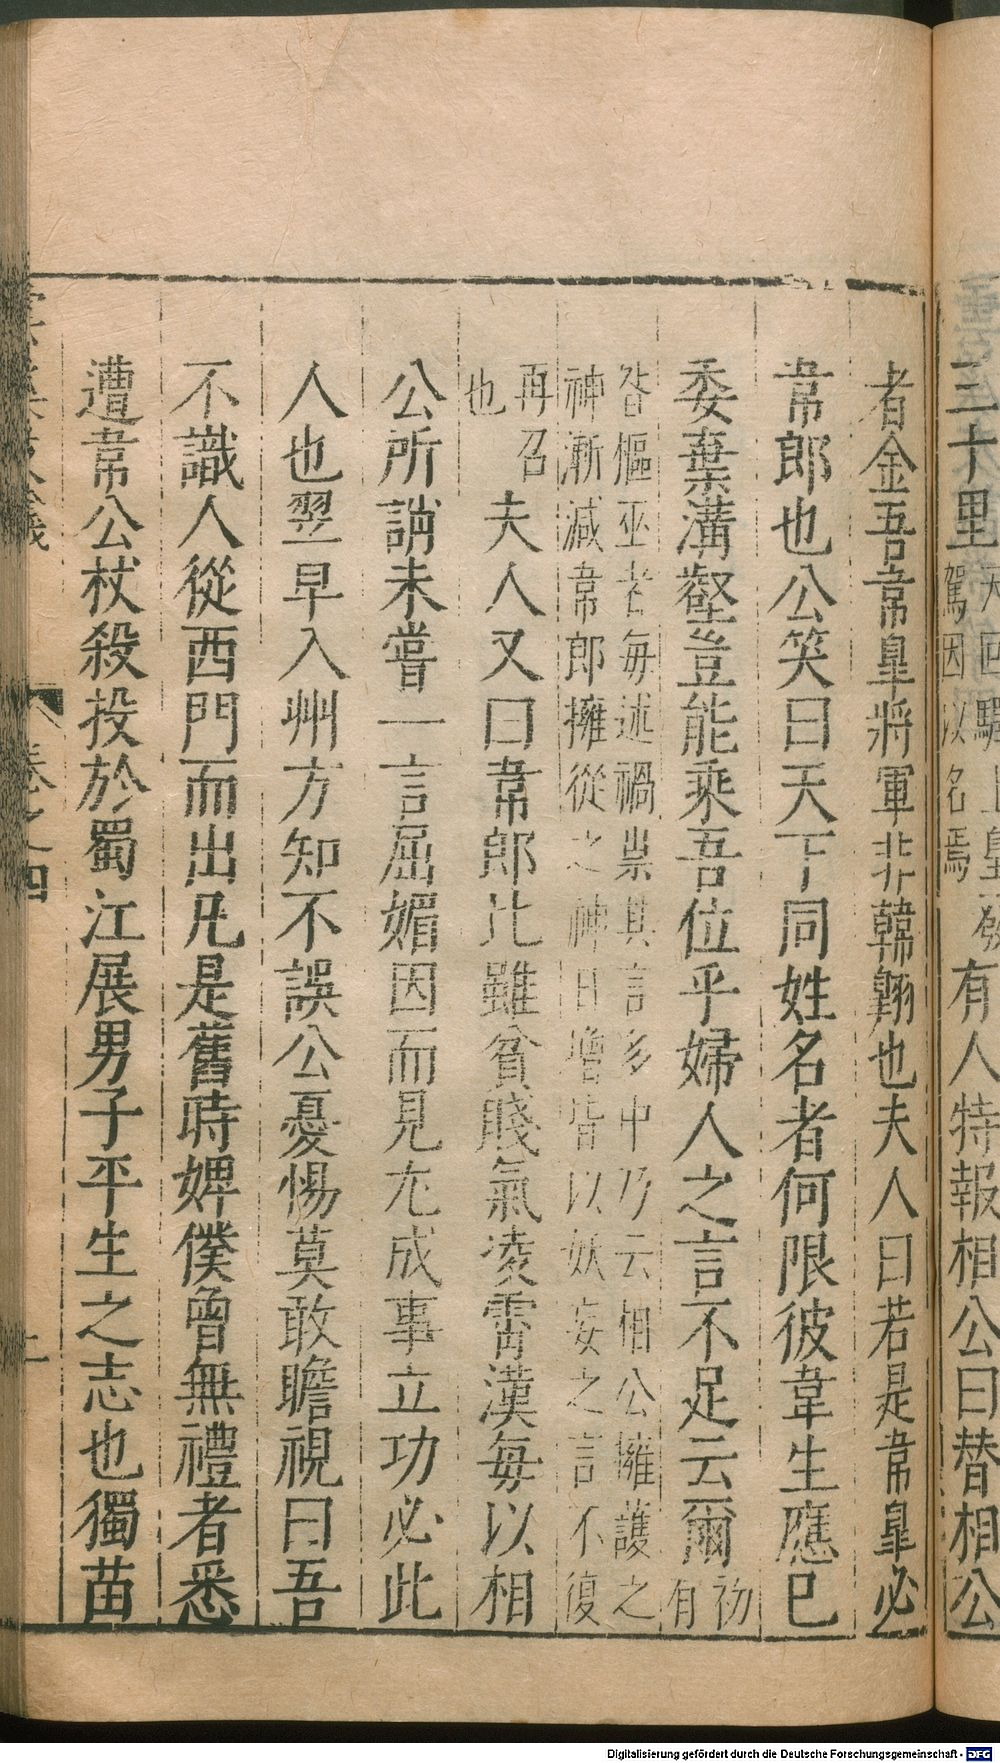 三十里天回驛上皇發駕因以名焉有人特報相公曰替相公
者金吾韋皐將軍非韓翱也夫人曰若是韋皐必
韋郎也公笑曰天下同姓名者何限彼韋生應已
委棄溝壑豈能乘吾位乎婦人之言不足云爾初有
昝樞巫者每述禍祟其言多中乃云相公擁護之
神漸減韋郎擁從之神日增皆以妖妄之言不復
再召也夫人又曰韋郎比雖貧賤氣凌霄漢每以相
公所誚未嘗一言屈媚因而見尤成事立功必此
人也翌早入州方知不誤公憂惕莫敢瞻視曰吾
不識人從西門而出凡是舊時婢僕曾無禮者悉
遭韋公杖殺投於蜀江展男子平生之志也獨苗
卷之四
Digitalisierung gefördert durch die Deutsche Forschungsgemeinschaft - DFG